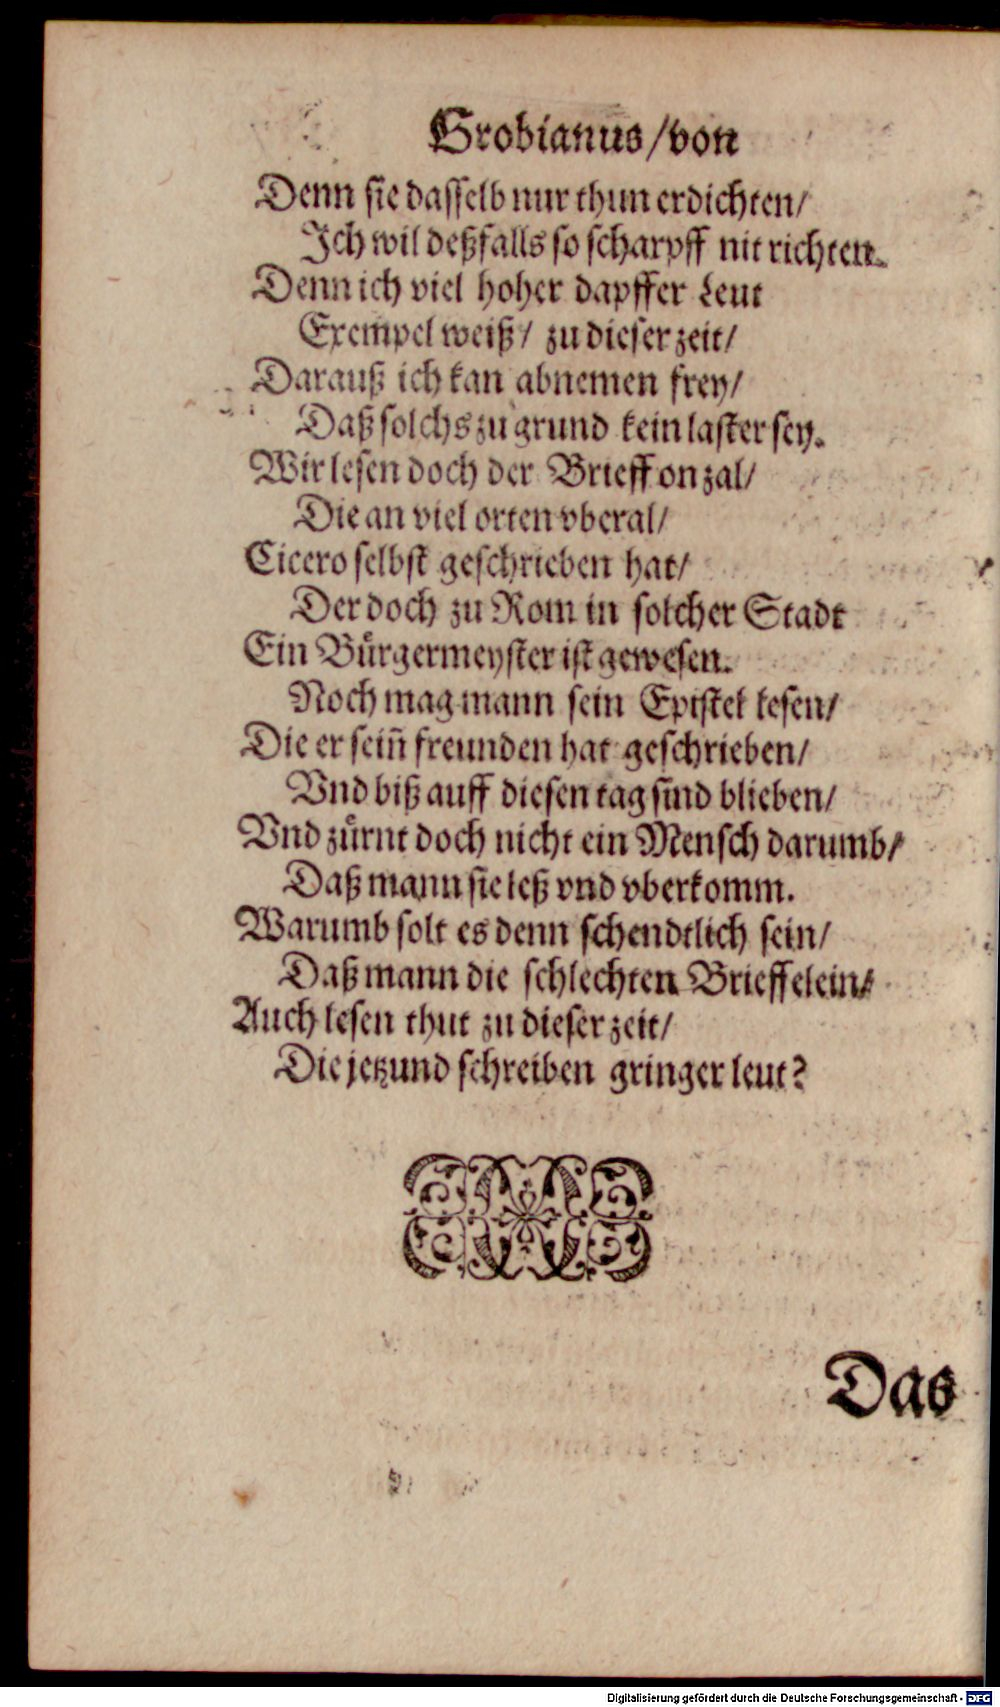 Grobianus/von
Denn sie dasselb nur thun erdichten/
Ich wil deßfalls so scharpff nit richten.
Denn ich viel hoher dapffer Leut
Exempel weiß/ zu dieser zeit/
Darauß ich kan abnemen frey/
Daß solchs zu grund kein laster sey.
Wir lesen doch der Brieff on zal/
Die an viel orten vberal/
Cicero selbst geschrieben hat/
Der doch zu Rom in solcher Stadt
Ein Bürgermeyster ist gewesen.
Noch mag mann sein Epistel lesen/
Die er sein̄ freunden hat geschrieben/
Vnd biß auff diesen tag sind blieben/
Vnd zürnt doch nicht ein Mensch darumb/
Daß mann sie leß vnd vberkomm.
Warumb solt es denn schendtlich sein/
Daß mann die schlechten Brieffelein/
Auch lesen thut zu dieser zeit/
Die jetzund schreiben gringer leut?
Das
Digitalisierung gefördert durch die Deutsche Forschungsgemeinschaft - DFG